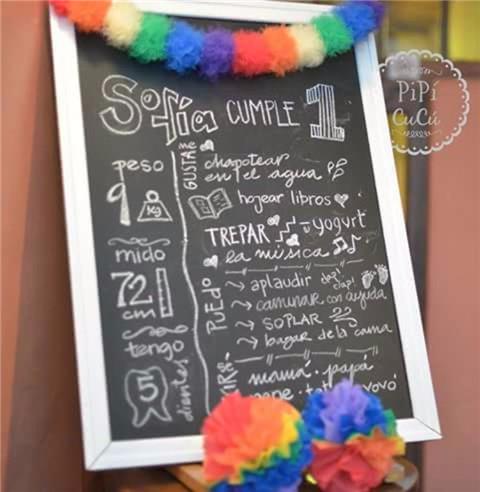 Sofía CUMPLE 1
peso
9 kg
mido
72 cm
tengo
5
dientes
me GUSTA
chapotear
en el agua
hojear libros
TREPAR yogurt
la música
PUEDO
aplaudir clap! clap!
caminar con ayuda
SOPLAR
bajar de la cama
mamá · papá
PiPí
CuCú